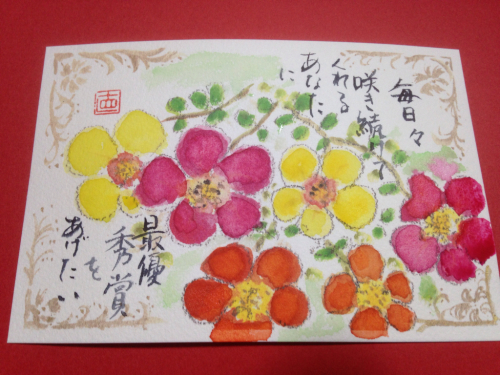 毎日々
咲き続けて
くれる
あなた
に
最優
秀賞
を
あげたい